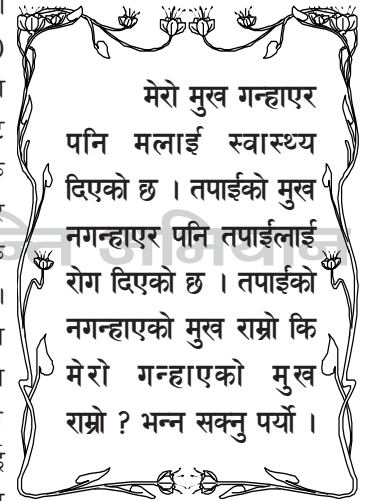 मेरो मुख गन्हाएर
पनि मलाई स्वास्थ्य
दिएको छ । तपाईको मुख
नगन्हाएर पनि तपाईलाई
रोग दिएको छ । तपाईको
नगन्हाएको मुख राम्रो कि
मेरो गन्हाएको मुख
राम्रो ? भन्न सक्नु पर्यो ।